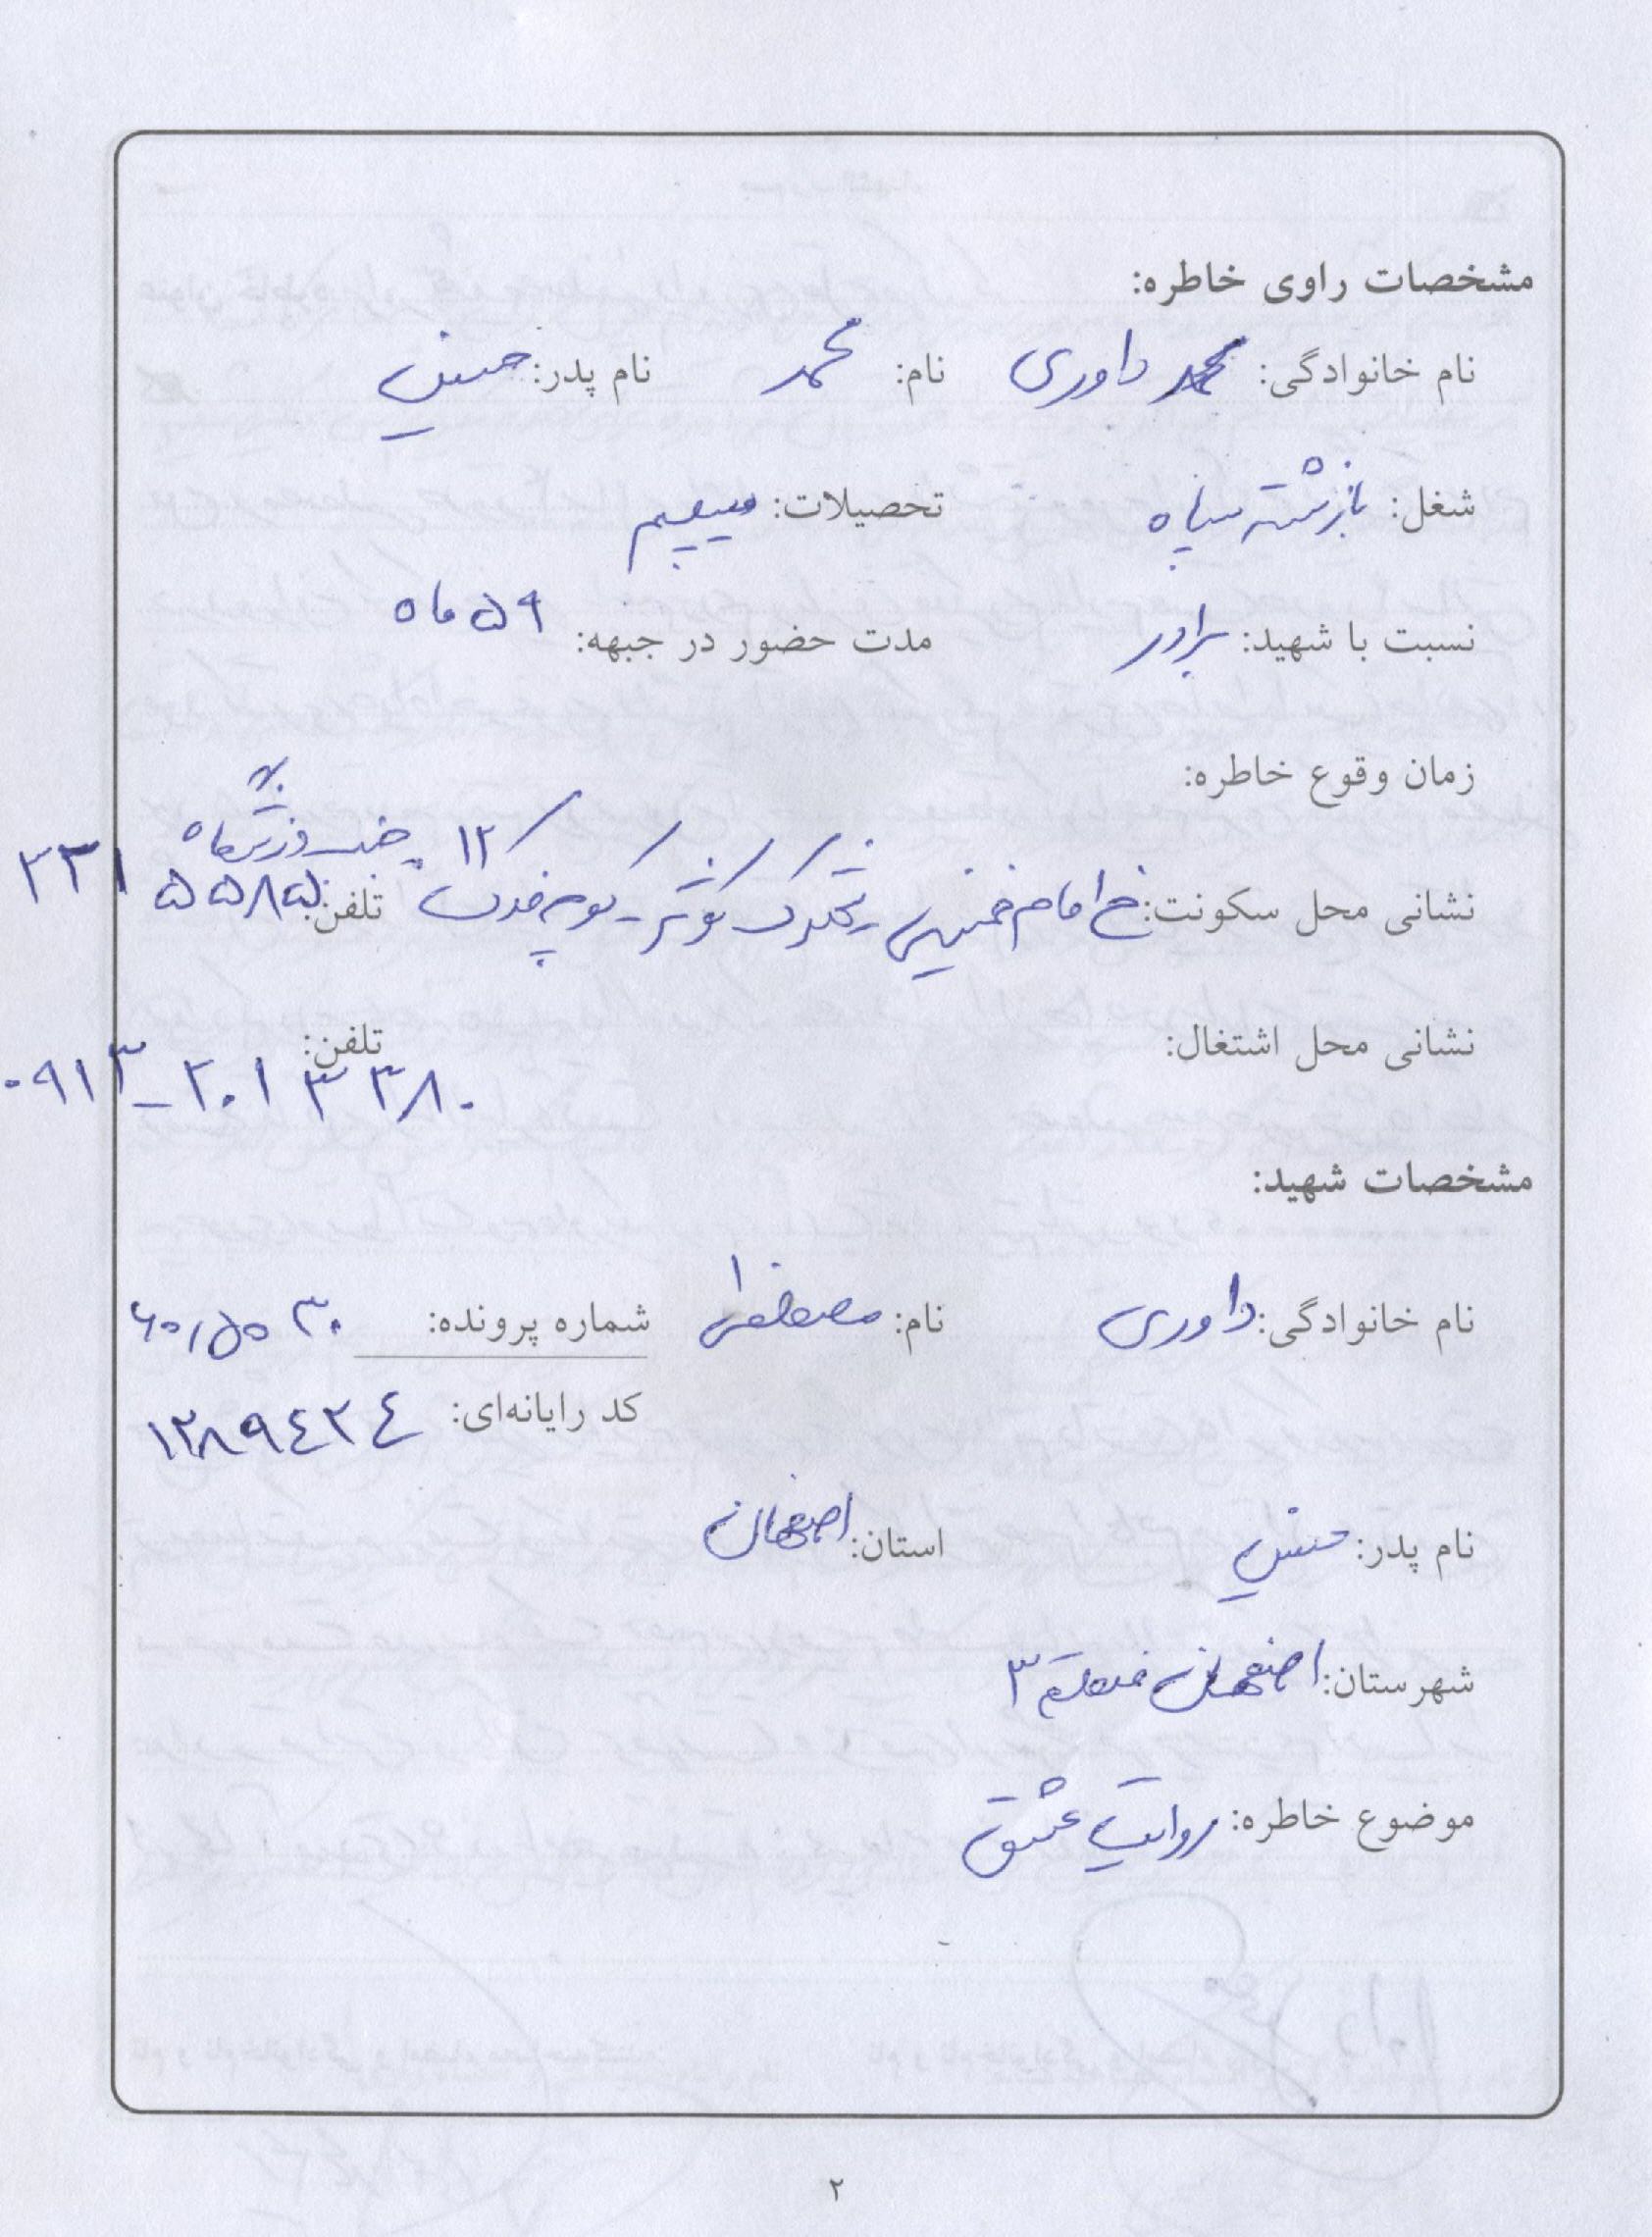 مشخصات راوی خاطره:
نام خانوادگی: داوری نام: محمد نام پدر: حسین
شغل: بازنشسته سپاه تحصیلات: سیپلم
نسبت با شهید: برادر مدت حضور در جبهه: ۵۹ ماه
زمان وقوع خاطره:
نشانی محل سکونت: خ امام خمینی - شهرک کوثر - کوچه ۱۲ جنب ورزشگاه تلفن: ۳۳۱ ۵۵۸۵
نشانی محل اشتغال: تلفن: ۰۹۱۳-۲۰۱۳۳۸۰
مشخصات شهید:
نام خانوادگی: داوری نام: مصطفی شماره پرونده:
کد رایانه‌ای: ۱۲۸۹۴۲۴
نام پدر: حسین استان: اصفهان
شهرستان: اصفهان منطقه ۳
موضوع خاطره: روایت عشق
۲